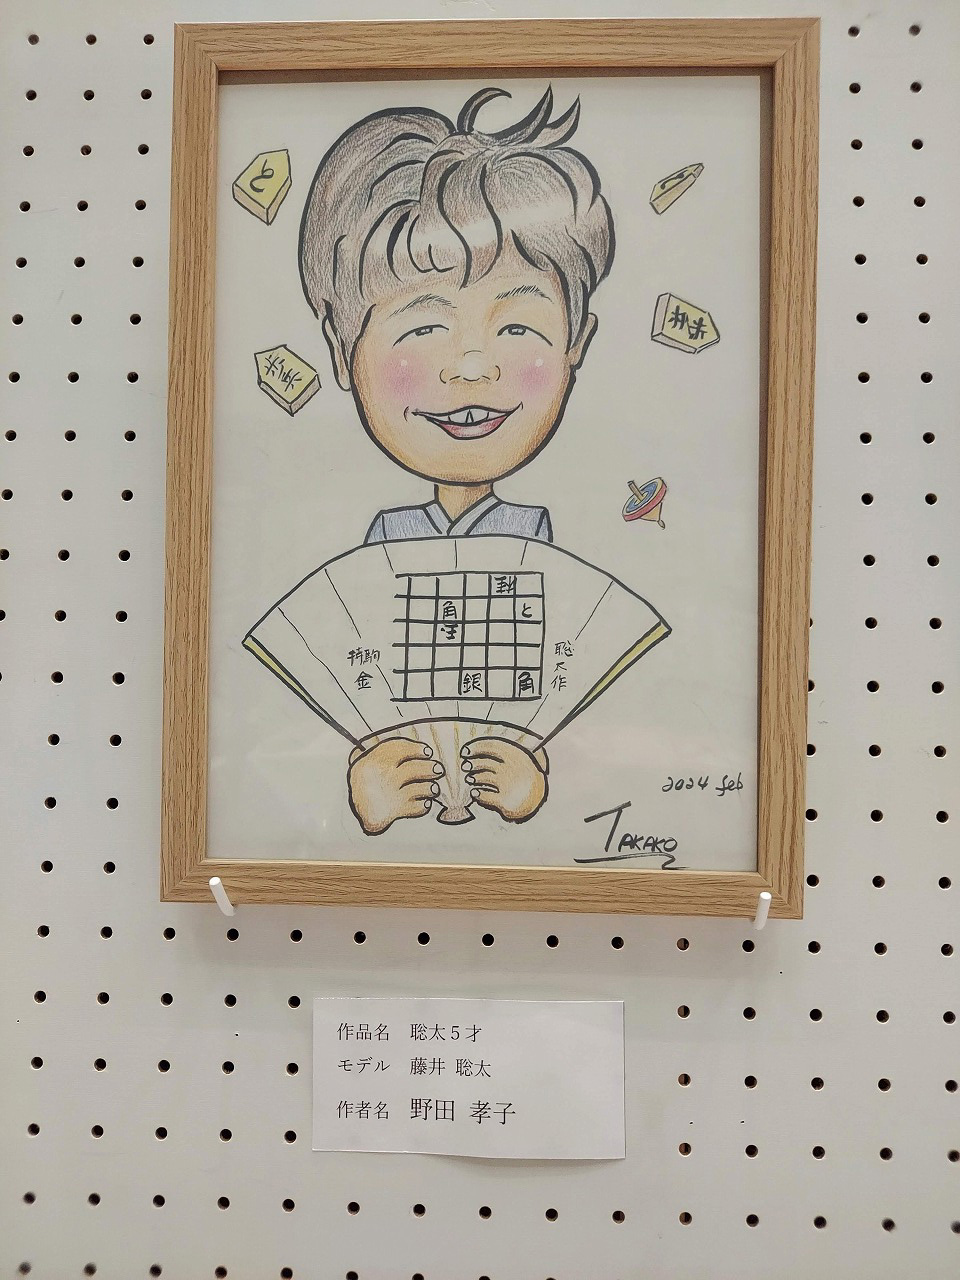 と
歩兵
歩兵
桂
角
と
王
銀
角
持駒
金
聡太作
2024 feb
TAKAKO
作品名 聡太5才
モデル 藤井 聡太
作者名 野田 孝子